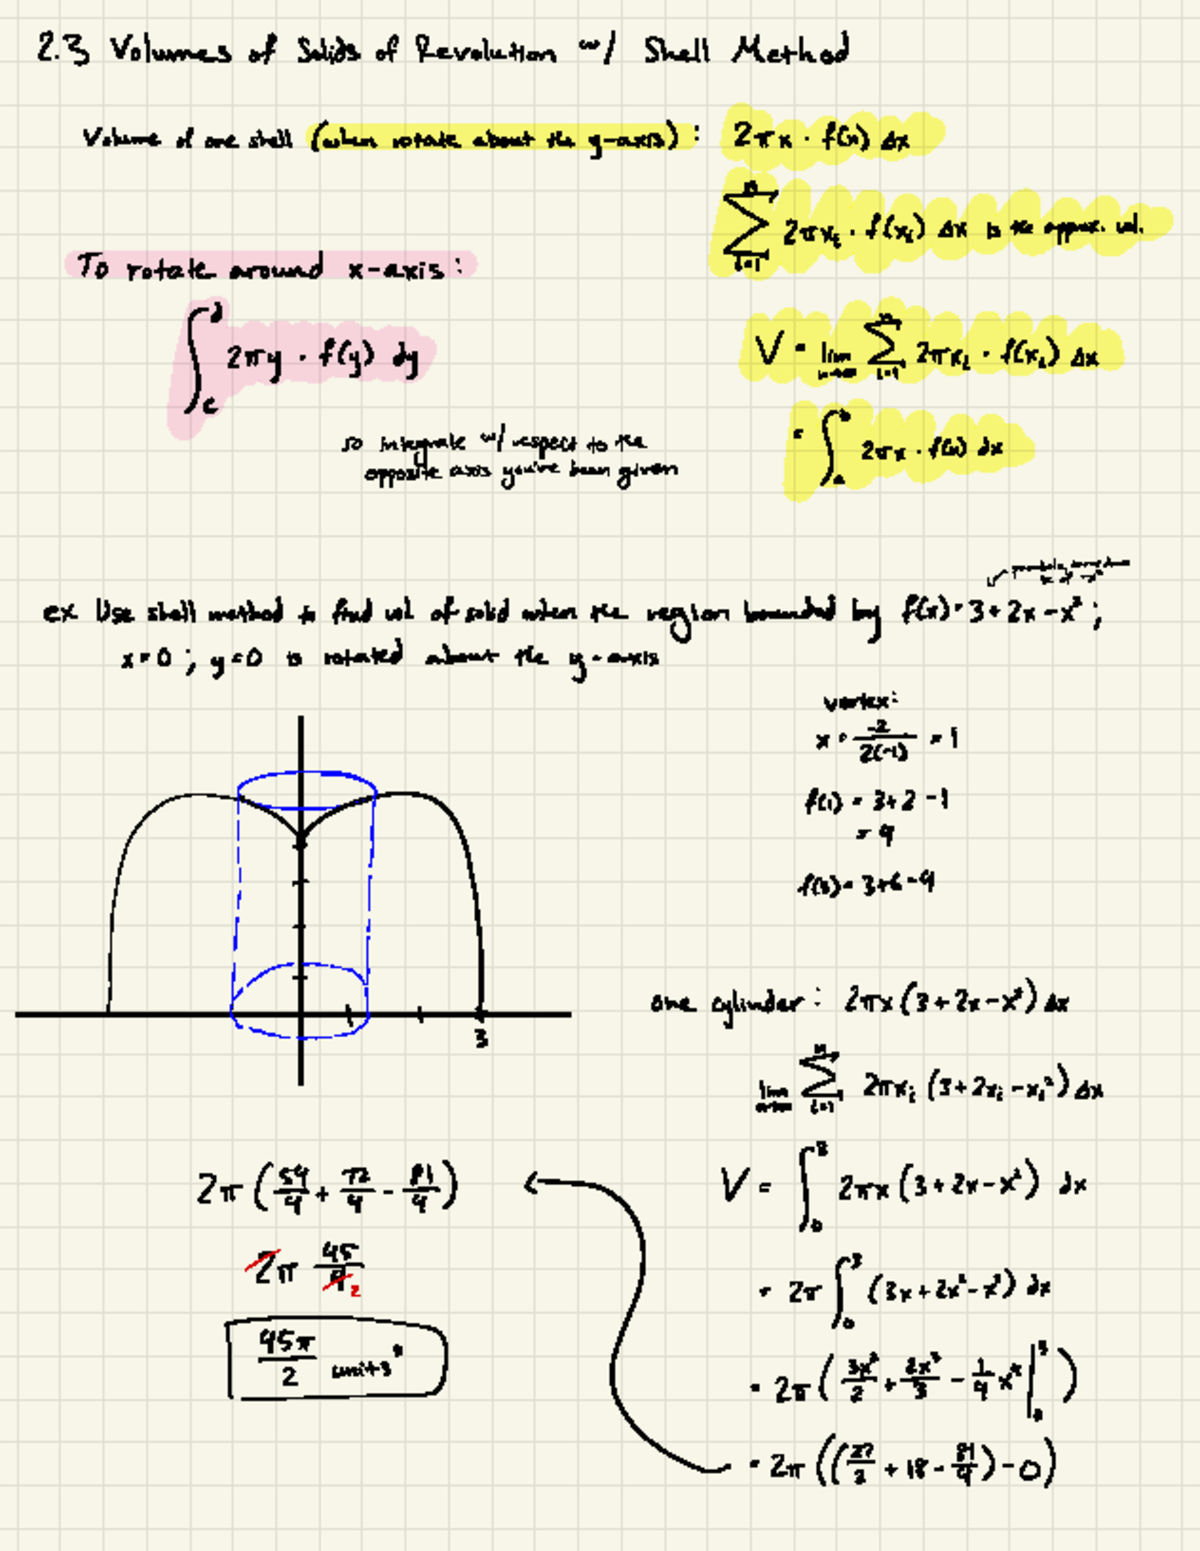 2.3 Volumes of Solids of Revolution w/ Shell Method
Volume of one shell (when rotate about the y-axis): 2πx · f(x) Δx
n ∑ i=1 2πxᵢ · f(xᵢ) Δx is the approx. vol.
To rotate around x-axis:
∫ d c 2πy · f(y) dy
V = lim n→∞ n ∑ i=1 2πxᵢ · f(xᵢ) Δx
= ∫ b a 2πx · f(x) dx
so integrate w/ respect to the
opposite axis you've been given
ex Use shell method to find vol of solid when the region bounded by f(x) = 3 + 2x - x²;
x = 0; y = 0 is rotated about the y-axis
vertex:
x = -2/2(-1) = 1
f(1) = 3 + 2 - 1
= 4
f(3) = 3 + 6 - 9
3
one cylinder: 2πx (3 + 2x - x²) Δx
lim n→∞ n ∑ i=1 2πxᵢ (3 + 2xᵢ - xᵢ²) Δx
V = ∫ 3 0 2πx (3 + 2x - x²) dx
= 2π ∫ 3 0 (3x + 2x² - x³) dx
= 2π (3x²/2 + 2x³/3 - 1/4 x⁴ | 3 0)
= 2π ((27/2 + 18 - 81/4) - 0)
2π (54/4 + 72/4 - 81/4)
2π 45/4 2
45π/2 units³